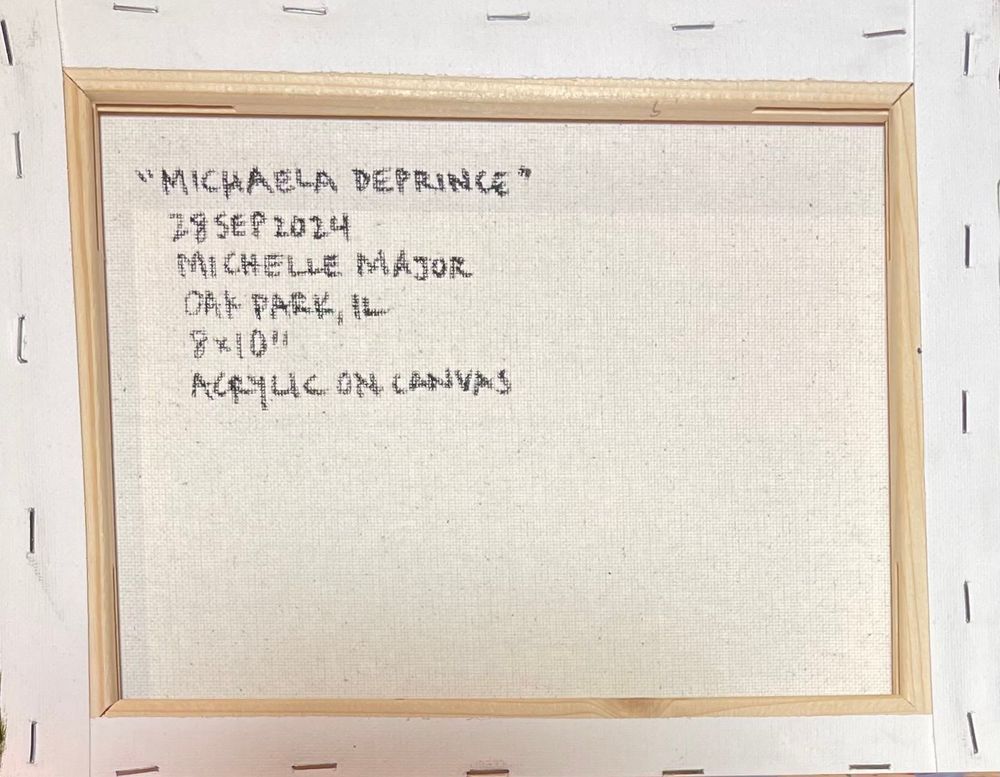 "MICHAELA DEPRINCE"
28 SEP 2024
MICHELLE MAJOR
OAK PARK, IL
8x10"
ACRYLIC ON CANVAS